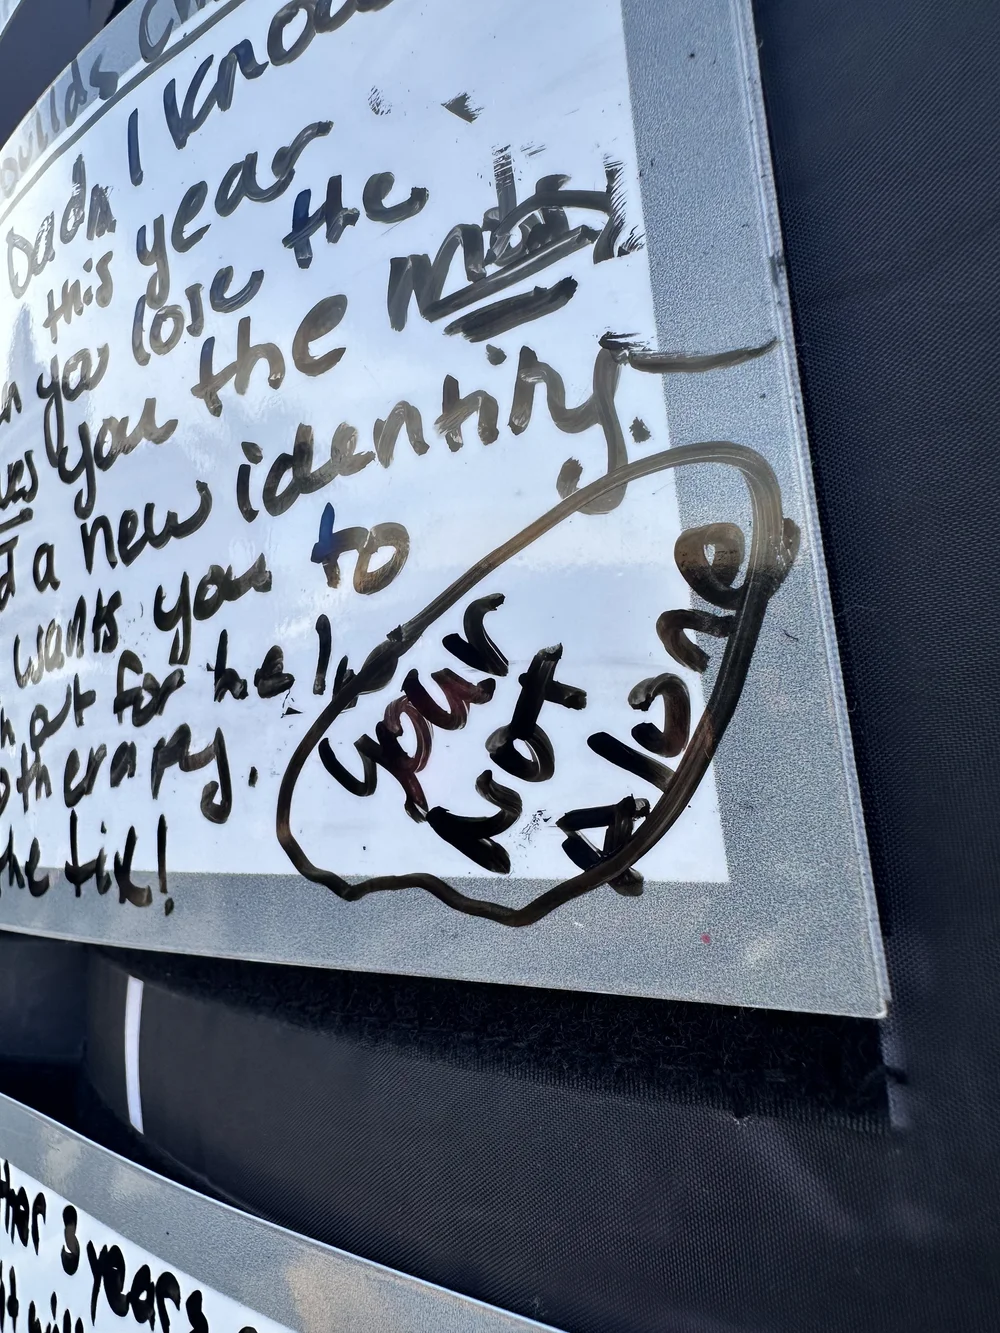 Dad I know
this year
you lose the
you the
a new identity.
wants you to
out for the
otherapy.
the fix!
your
not
Alone
3 years